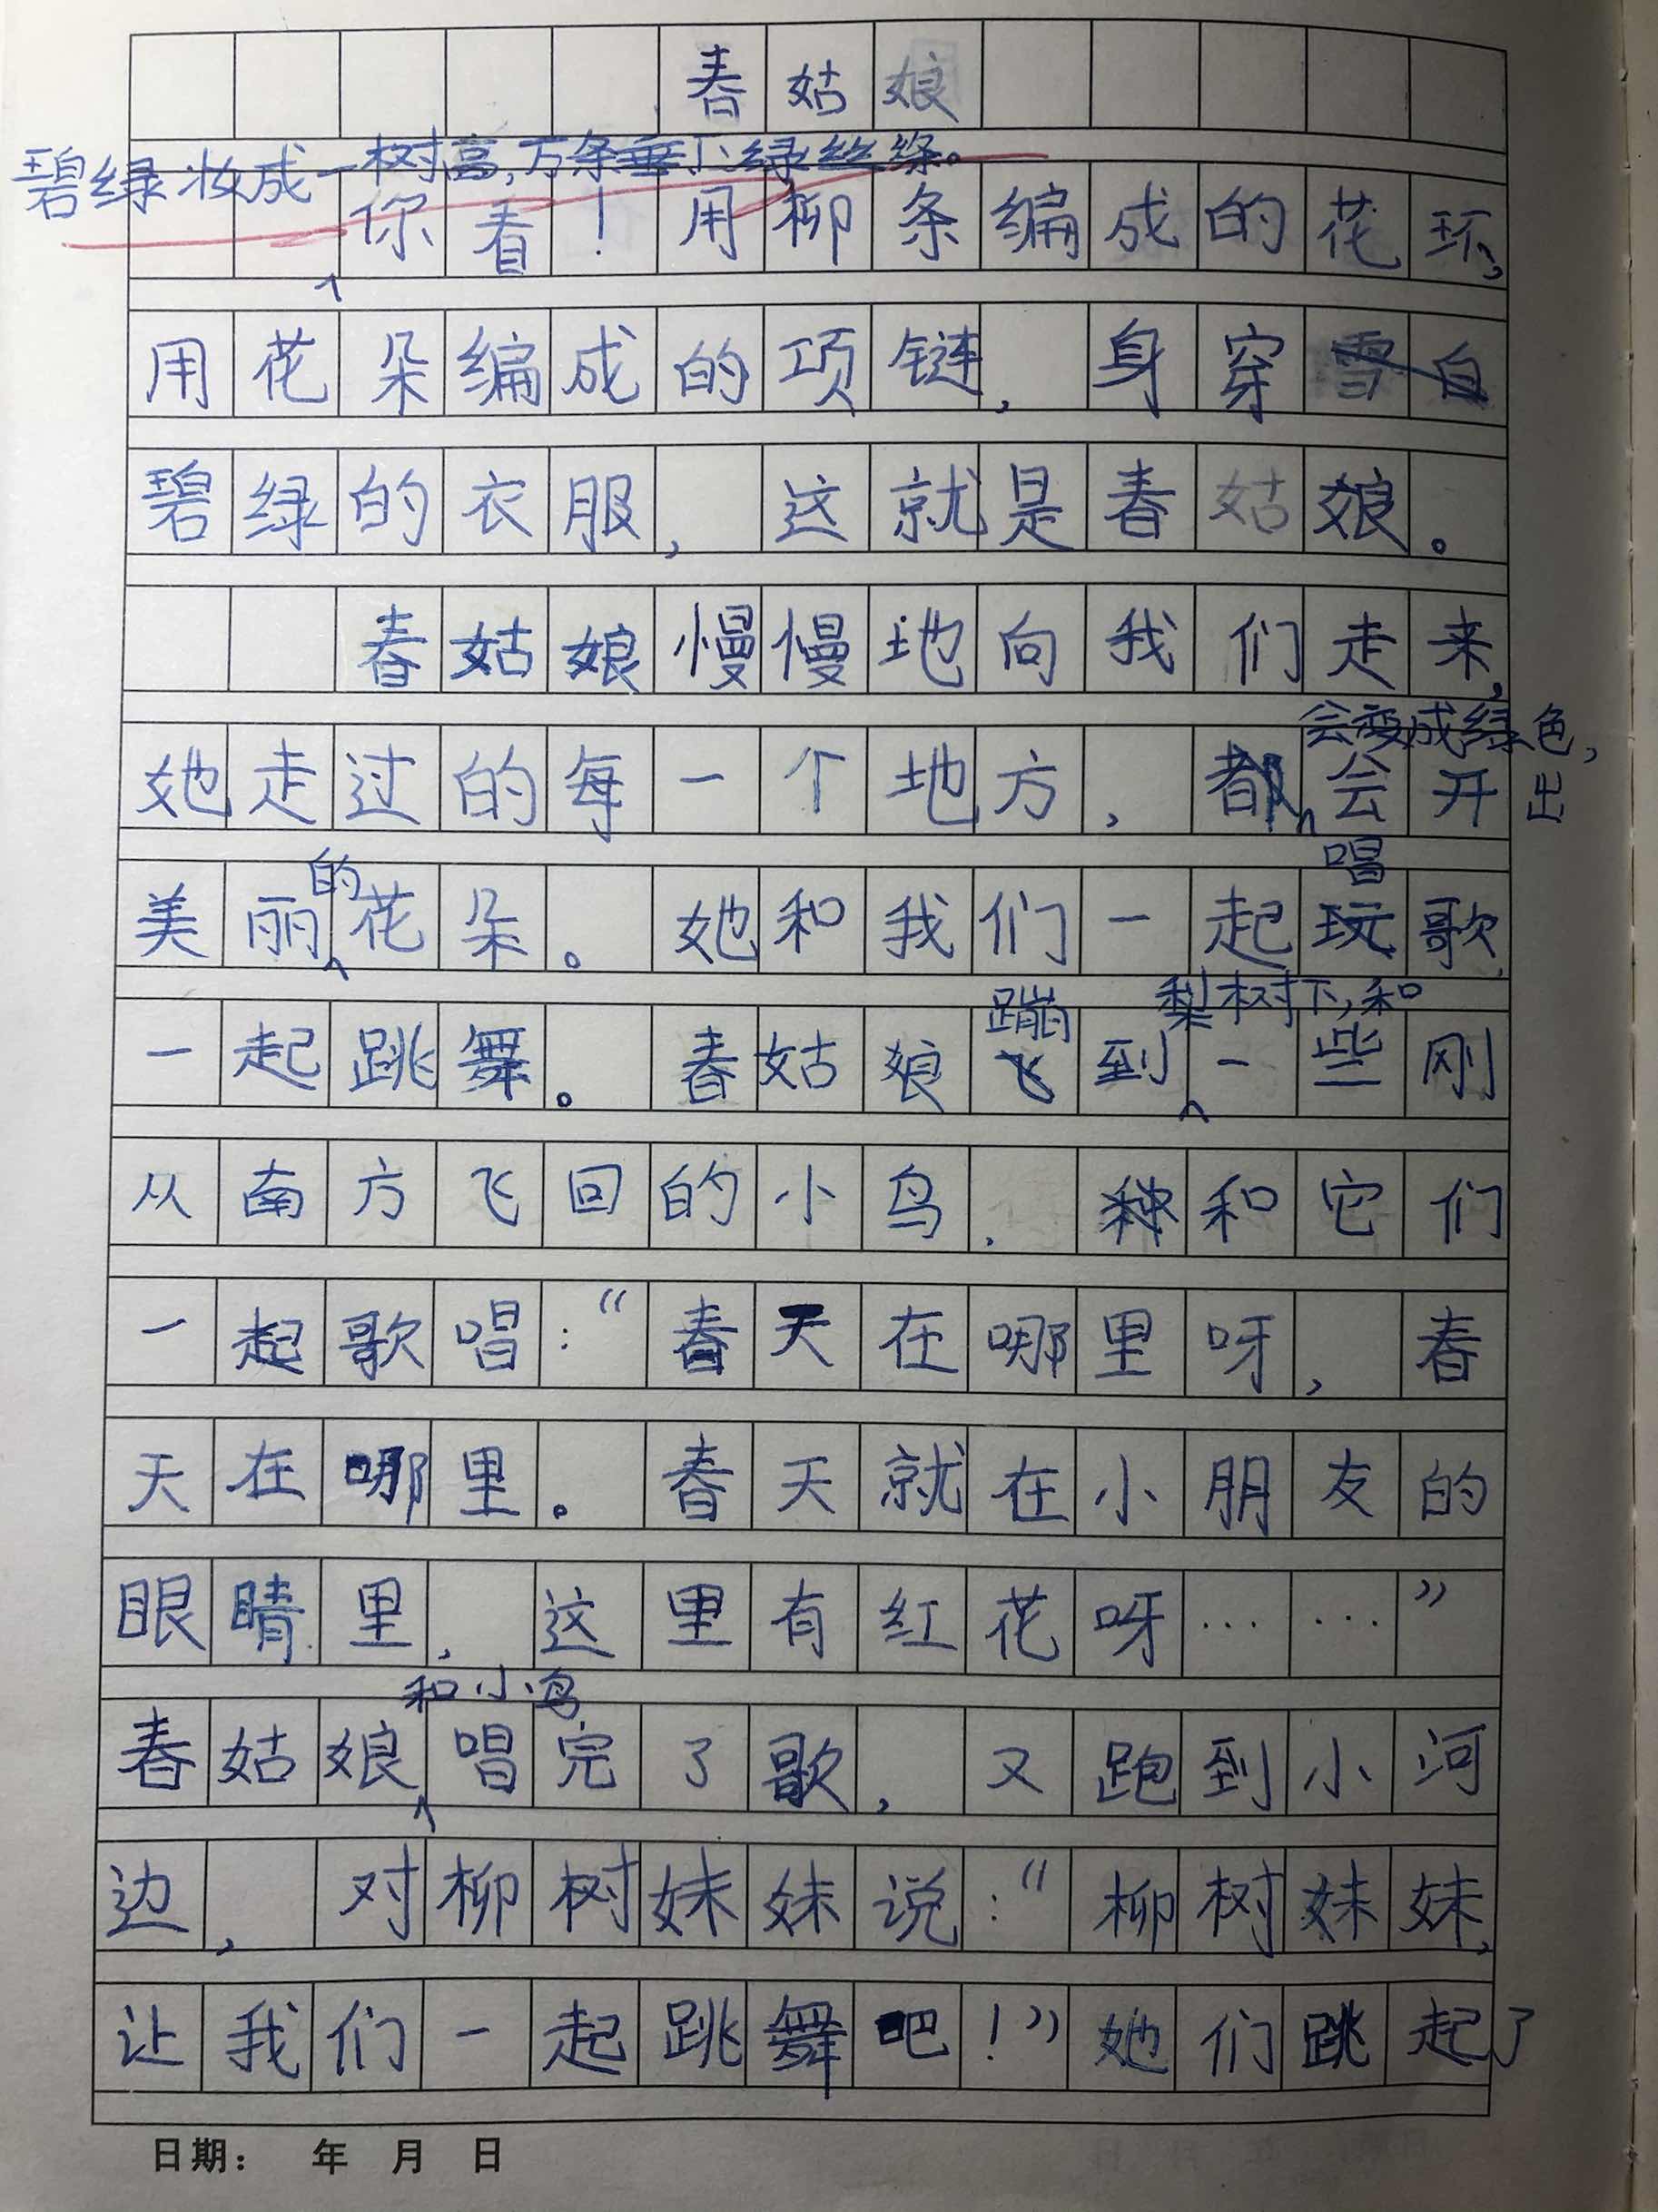 春姑娘
碧绿妆成一树高,万条垂下绿丝绦。
你看!用柳条编成的花环,
用花朵编成的项链,身穿雪白
碧绿的衣服,这就是春姑娘。
春姑娘慢慢地向我们走来,
会变成绿色,
她走过的每一个地方,都会开出
的
唱
美丽花朵。她和我们一起玩歌,
蹦
梨树下,和
一起跳舞。春姑娘飞到一些刚
从南方飞回的小鸟,和它们
一起歌唱:“春天在哪里呀,春
天在哪里。春天就在小朋友的
眼睛里,这里有红花呀……”
和小鸟
春姑娘唱完了歌,又跑到小河
边,对柳树妹妹说:“柳树妹妹,
让我们一起跳舞吧!”她们跳起了
日期: 年 月 日